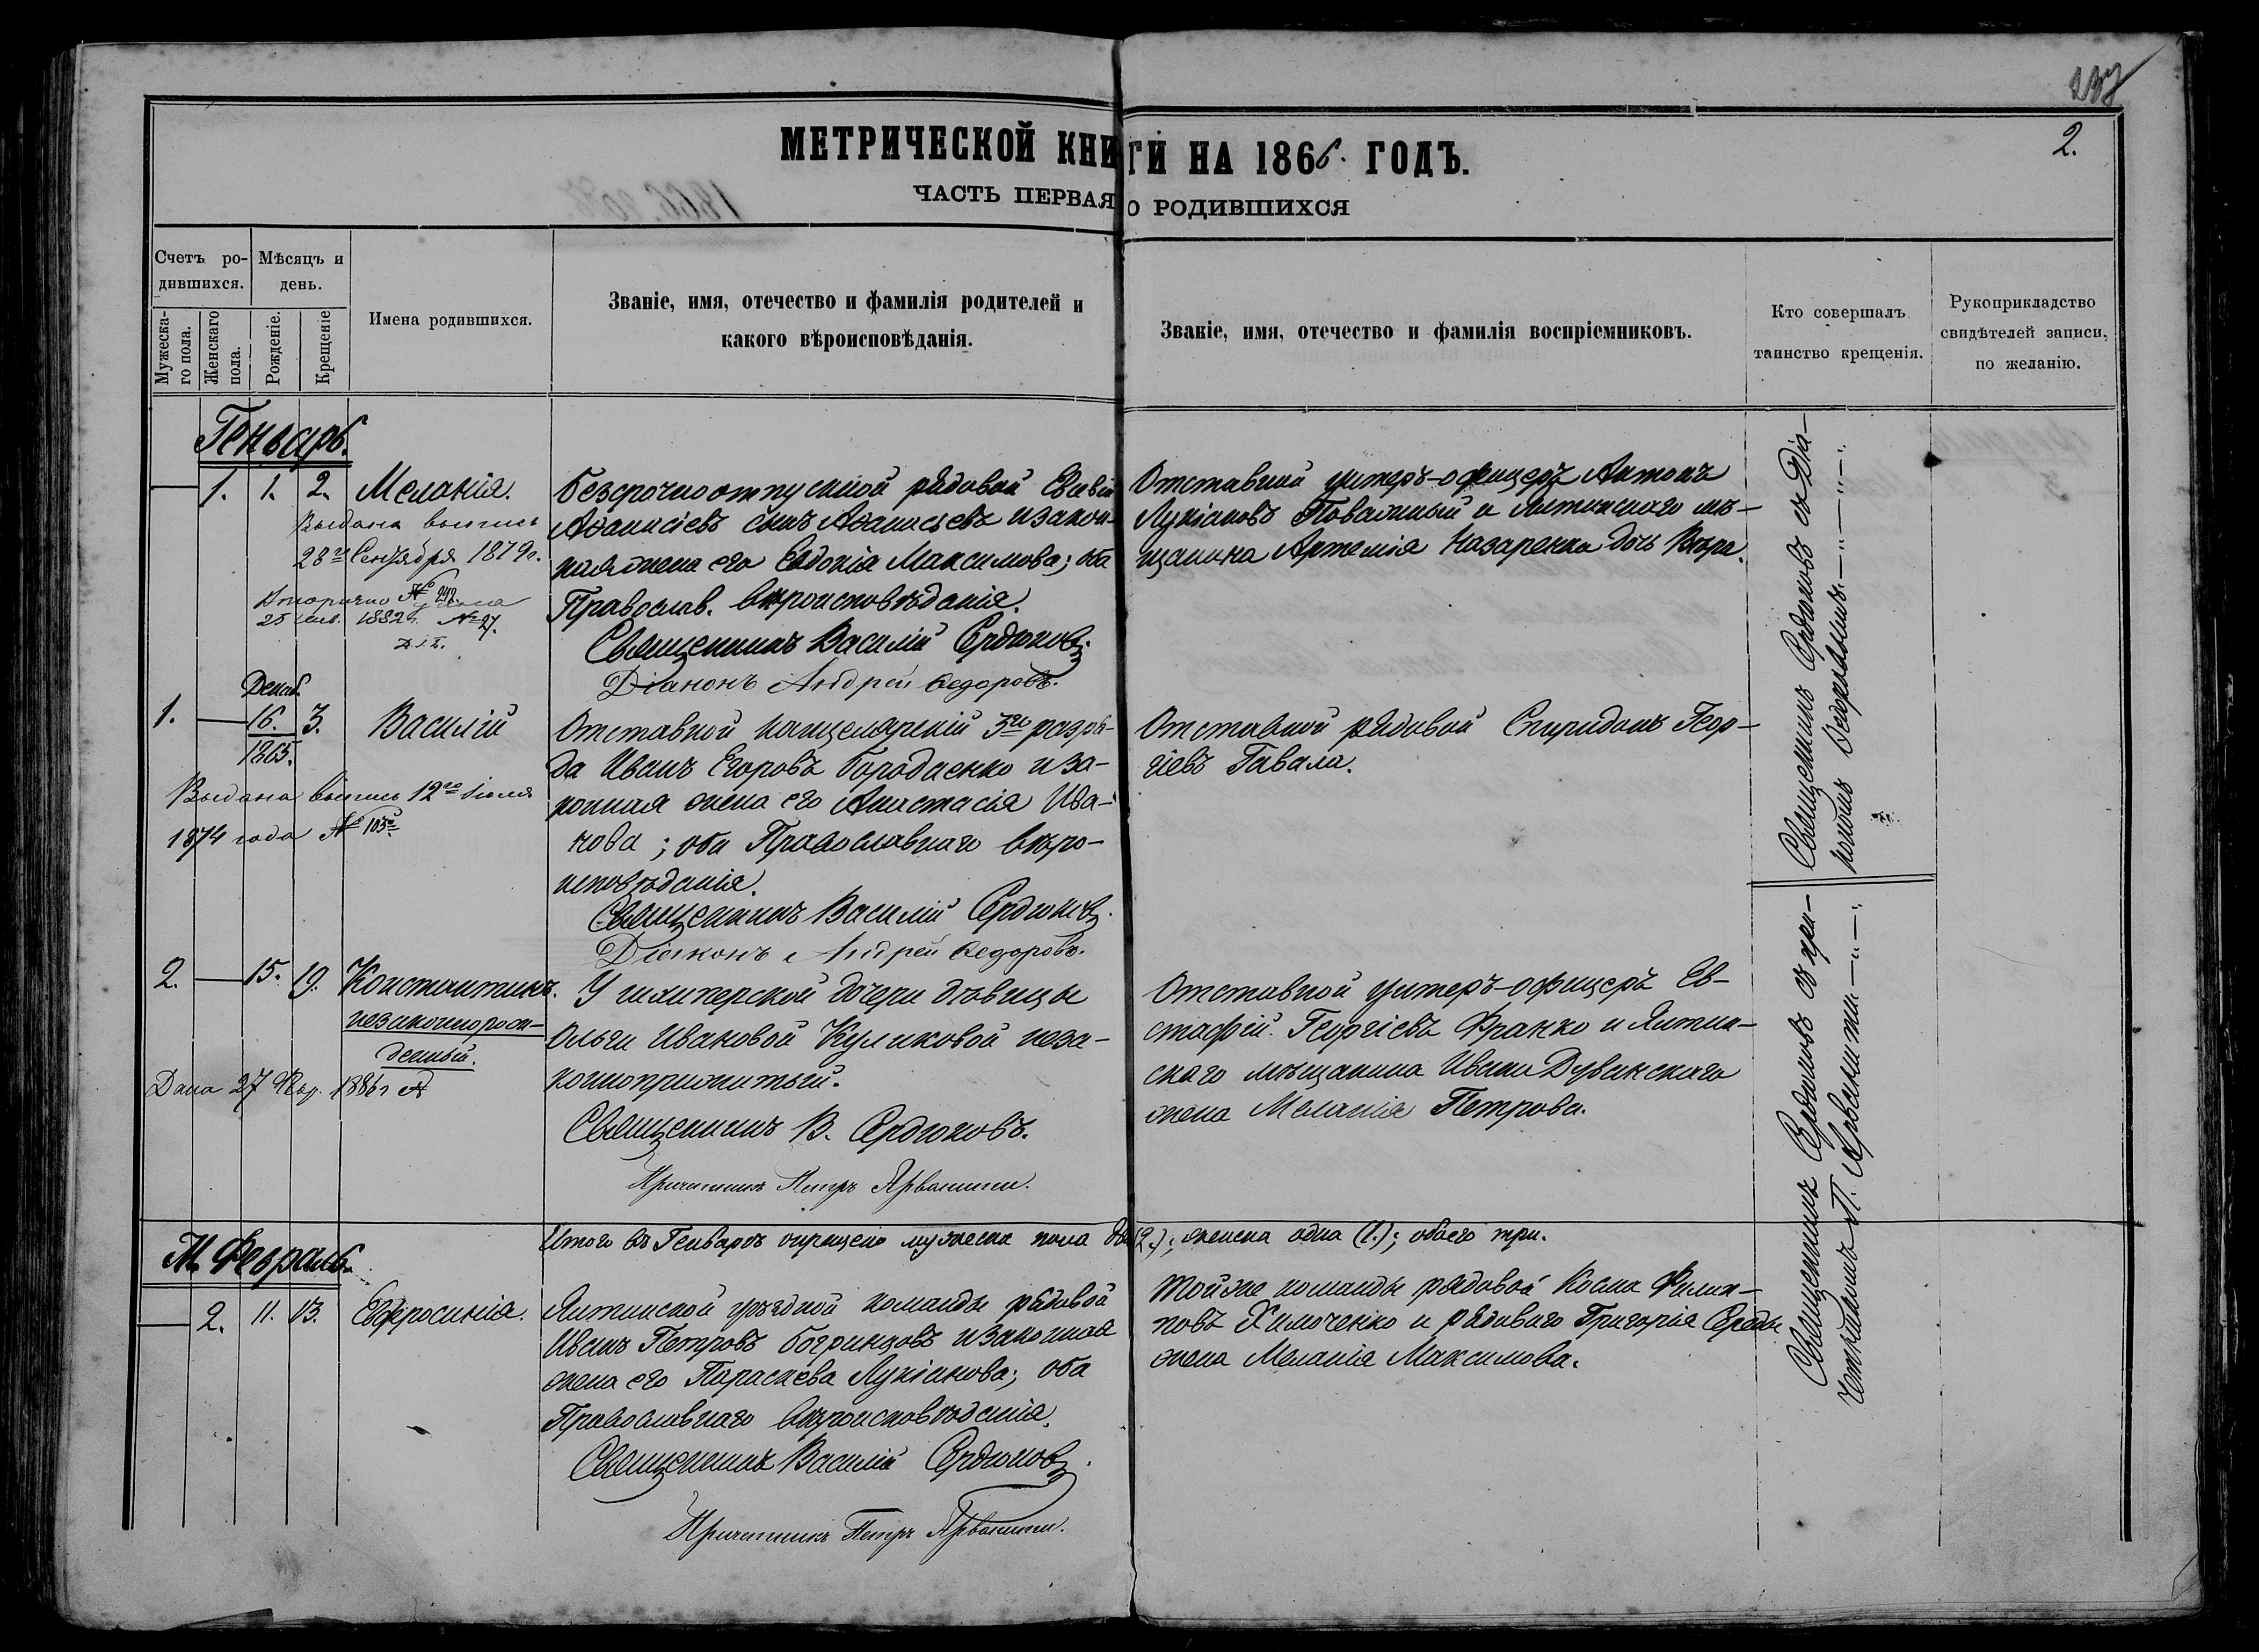 237
2.
МЕТРИЧЕСКОЙ КНИГИ НА 1866. ГОДЪ.
ЧАСТЬ ПЕРВАЯ О РОДИВШИХСЯ
Счетъ ро-
дившихся.
Мужеска-
го пола.
Женскаго
пола.
Мѣсяцъ и
день.
Рожденіе.
Крещеніе
Имена родившихся.
Званіе, имя, отечество и фамилія родителей и
какого вѣроисповѣданія.
Званіе, имя, отечество и фамилія воспріемниковъ.
Кто совершалъ
таинство крещенія.
Рукоприкладство
свидѣтелей записи,
по желанію.
Генварь.
1. 1. 2. Меланія.
Выдана выпись
28го Сентября 1879 г.
№ 292
Вторично
25 1882 г. № 27.
Безсрочноотпускной рядовой
Аѳанасіевъ сынъ Аѳанасьевъ и закон-
ная жена его Евдокія Максимова; оба
Православ. вѣроисповѣданія.
Священникъ Василій Сердюковъ.
Діаконъ Андрей Ѳедоровъ.
Отставной унтеръ-офицеръ Антонъ
Лукіановъ Поважный и Ялтинскаго мѣ-
щанина Артемія Назаренка дочь Вѣра.
Священникъ Сердюковъ съ Діа-
кономъ Ѳедоровымъ — „ — „ — „ — :
Декаб.
1. — 16. 3. Василій
1865.
Выдана выпись 12го Іюля
1874 года № 103
Отставной канцелярскій 3го разря-
да Иванъ Егоровъ Бородаенко и за-
конная жена его Анастасія Ива-
нова; оба Православнаго вѣро-
исповѣданія.
Священникъ Василій Сердюковъ.
Діаконъ Андрей Ѳедоровъ.
Отставной рядовой Спиридонъ Геор-
гіевъ Гавала.
2. — 15. 19. Константинъ.
незаконнорож-
денный.
Дана 27 Февр. 1886 г
У шкиперской дочери дѣвицы
Ольги Ивановой Куликовой неза-
конноприжитый.
Священникъ В. Сердюковъ.
Причетникъ Петръ Арванити.
Отставной унтеръ-офицеръ Ев-
стафій Георгіевъ Франко и Ялтин-
скаго мѣщанина Ивана Дувакскаго
жена Меланія Петрова.
Священникъ Сердюковъ съ при-
четникомъ П. Арванити — „ — :
Итого въ Генварѣ окрещено мужеска пола два (2.); женска одна (1.); обоего три.
М. Февраль.
2. 11. 13. Евфросинія.
Ялтинской уѣздной команды рядовой
Иванъ Петровъ Богринцовъ и законная
жена его Параскева Лукіанова; оба
Православнаго вѣроисповѣданія.
Священникъ Василій Сердюковъ.
Причетникъ Петръ Арванити.
Той же команды рядовой Косма Филип-
повъ Химоченко и рядоваго Григорія Середы
жена Меланія Максимова.